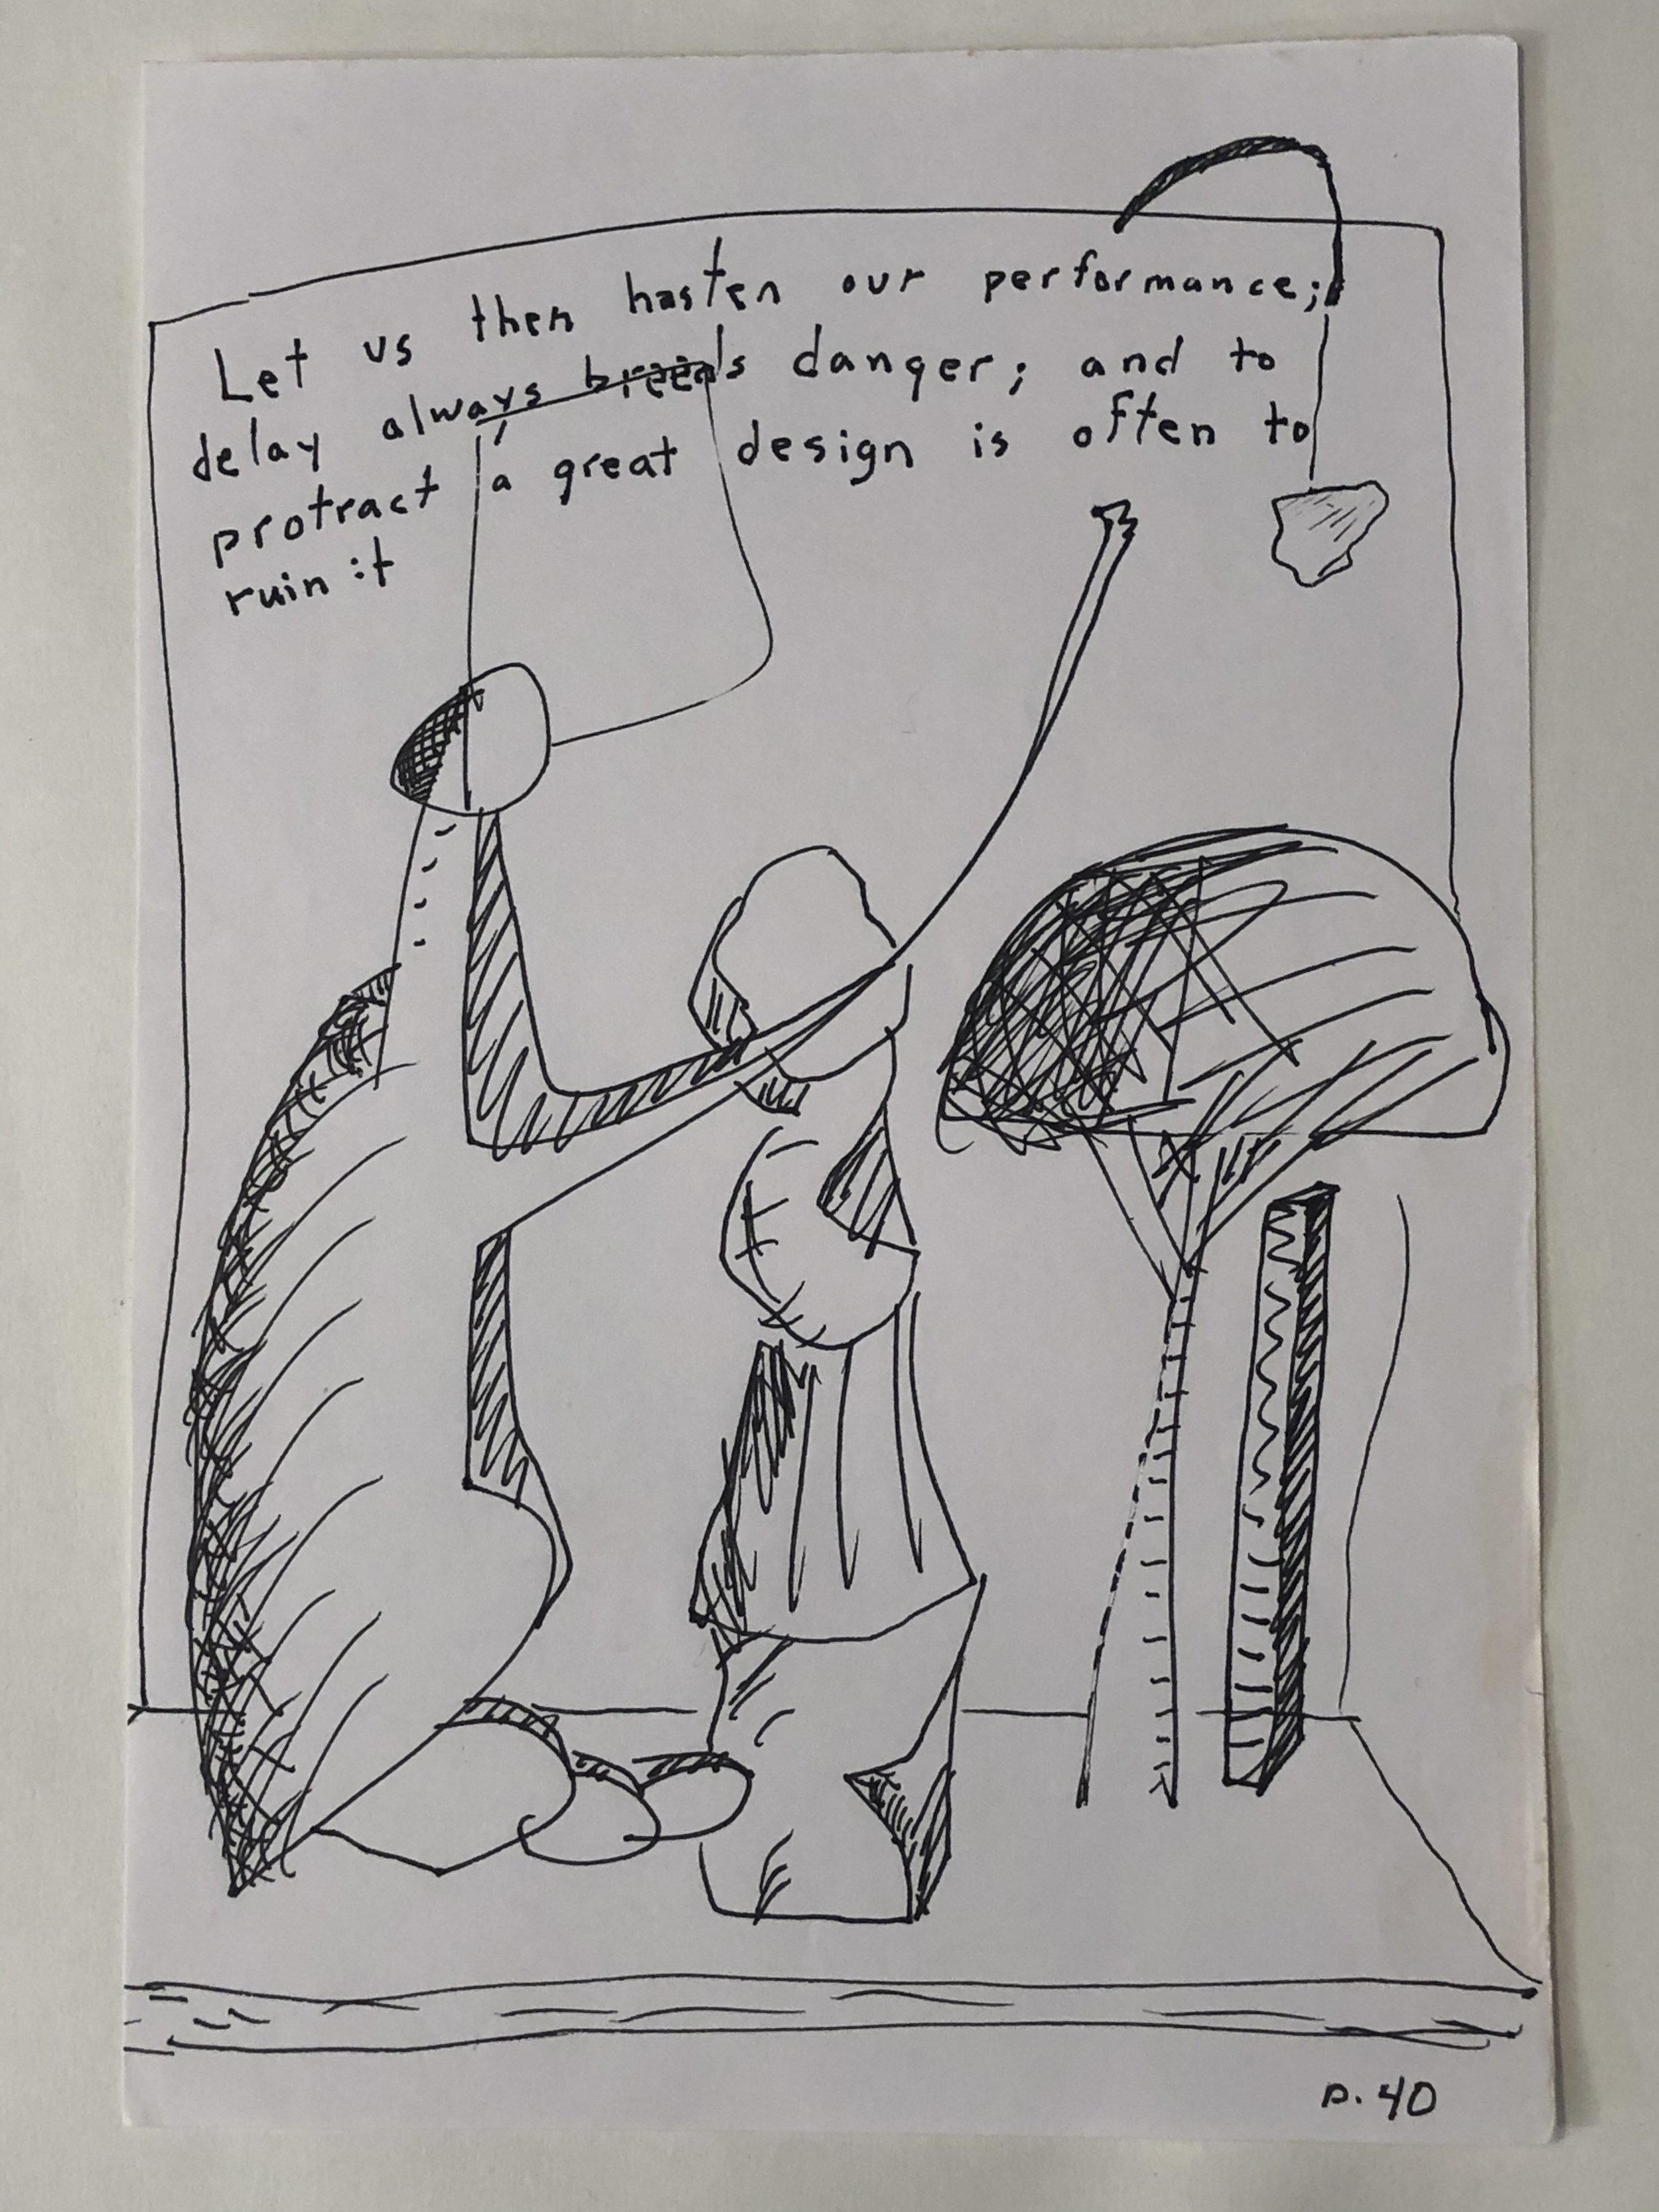 Let us then hasten our performance;
delay always breeds danger; and to
protract a great design is often to
ruin it
p. 40